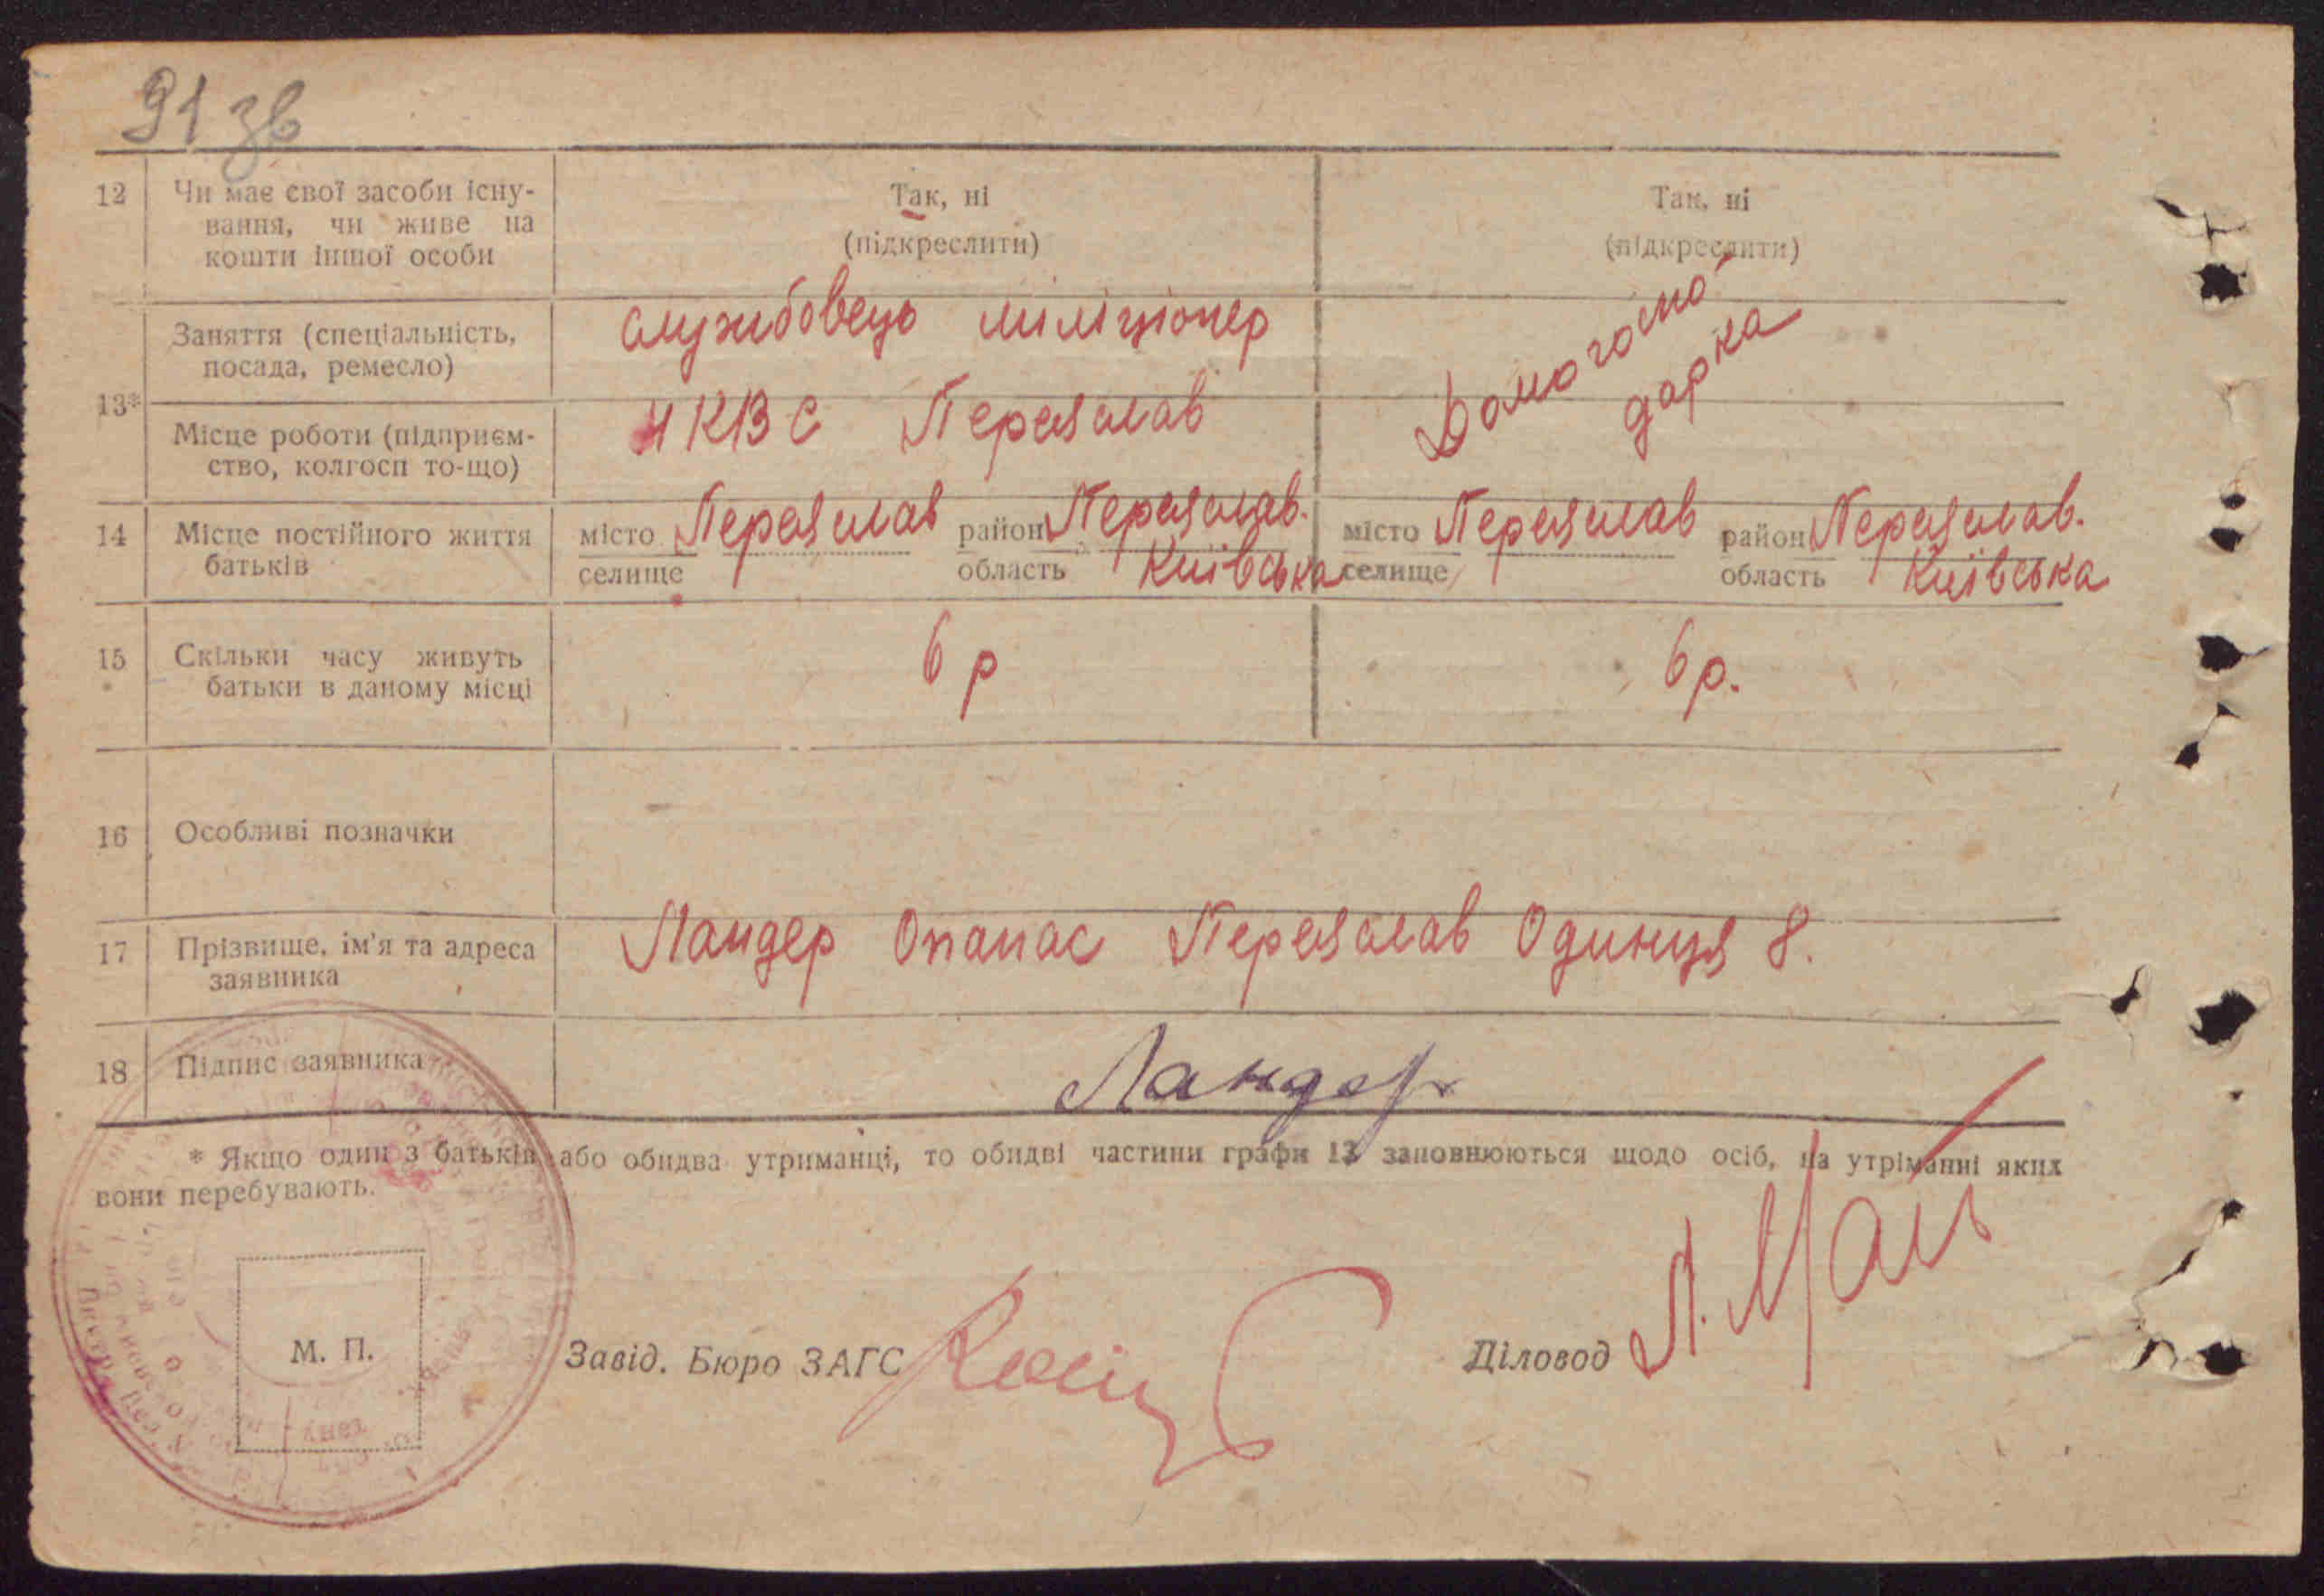 91 зв
12 Чи має свої засоби існу- Так, ні Так, ні
вання, чи живе на (підкреслити) (підкреслити)
кошти іншої особи
13* Заняття (спеціальність, службовець міліціонер Домогомо-
посада, ремесло) дарка
Місце роботи (підприєм- НКВС Переяслав
ство, колгосп то-що)
14 Місце постійного життя місто Переяслав район Переяслав. місто Переяслав район Переяслав.
батьків селище область Київська селище область Київська
15 Скільки часу живуть 6 р 6 р.
батьки в даному місці
16 Особливі позначки
17 Прізвище, ім'я та адреса Ландер Опанас Переяслав Одинця 8.
заявника
18 Підпис заявника Ландер
* Якщо один з батьків або обидва утриманці, то обидві частини графи 13 заповнюються щодо осіб, на утріманні яких
вони перебувають.
М. П. Завід. Бюро ЗАГС Діловод